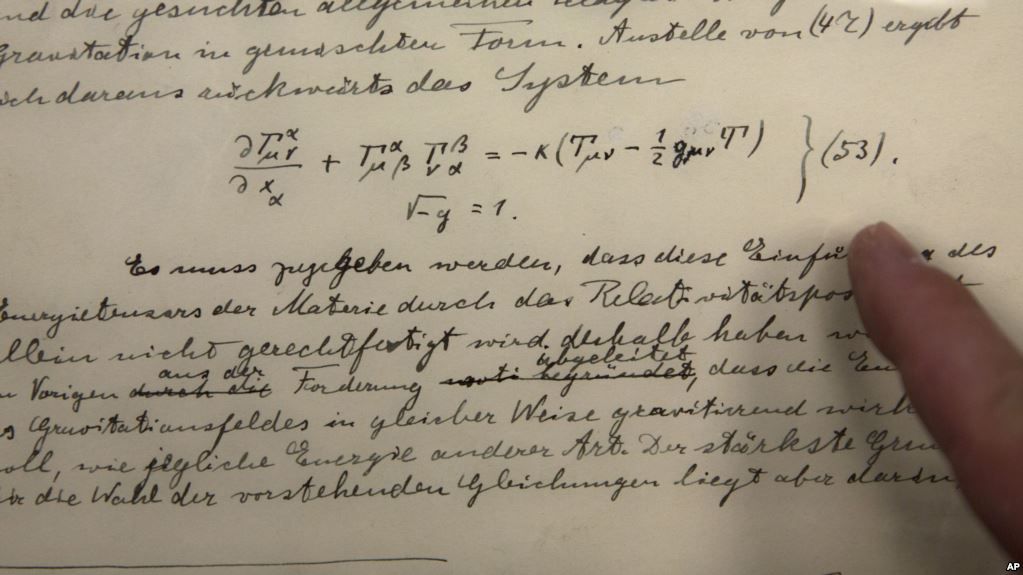 und die gesuchten allgemeinen
Gravitation in gemischten Form. Anstelle von (47) ergibt
sich daraus rückwärts das System
∂Γ^α_μν / ∂x_α + Γ^α_μβ Γ^β_να = -κ(T_μν - 1/2 g_μν T) } (53).
√-g = 1.
Es muss zugegeben werden, dass diese Einfü des
Energietensors der Materie durch das Relativitätspos
allein nicht gerechtfertigt wird. deshalb haben w
aus der abgeleitet
Vorigen durch die Forderung begründet, dass die En
Gravitationsfeldes in gleicher Weise gravitierend wirk
soll, wie jegliche Energie anderer Art. Der stärkste Grun
die Wahl der vorstehenden Gleichungen liegt aber darin,
AP